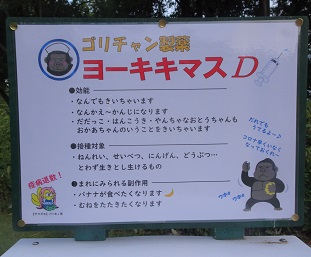 ゴリチャン製薬
ヨーキキマスD
●効能
・なんでもきいちゃいます
・なんかえ〜かんじになります
・だだっこ・はんこうき・やんちゃなおとうちゃんも
おかあちゃんのいうことをきいちゃいます
●接種対象
・ねんれい、せいべつ、にんげん、どうぶつ…
とわず生きとし生けるもの
●まれにみられる副作用
・バナナが食べたくなります
・むねをたたきたくなります
だれでも
うてるよ〜♪
コロナ早くいなく
なっておくれ〜
疫病退散!
ウホッ
ウホッ